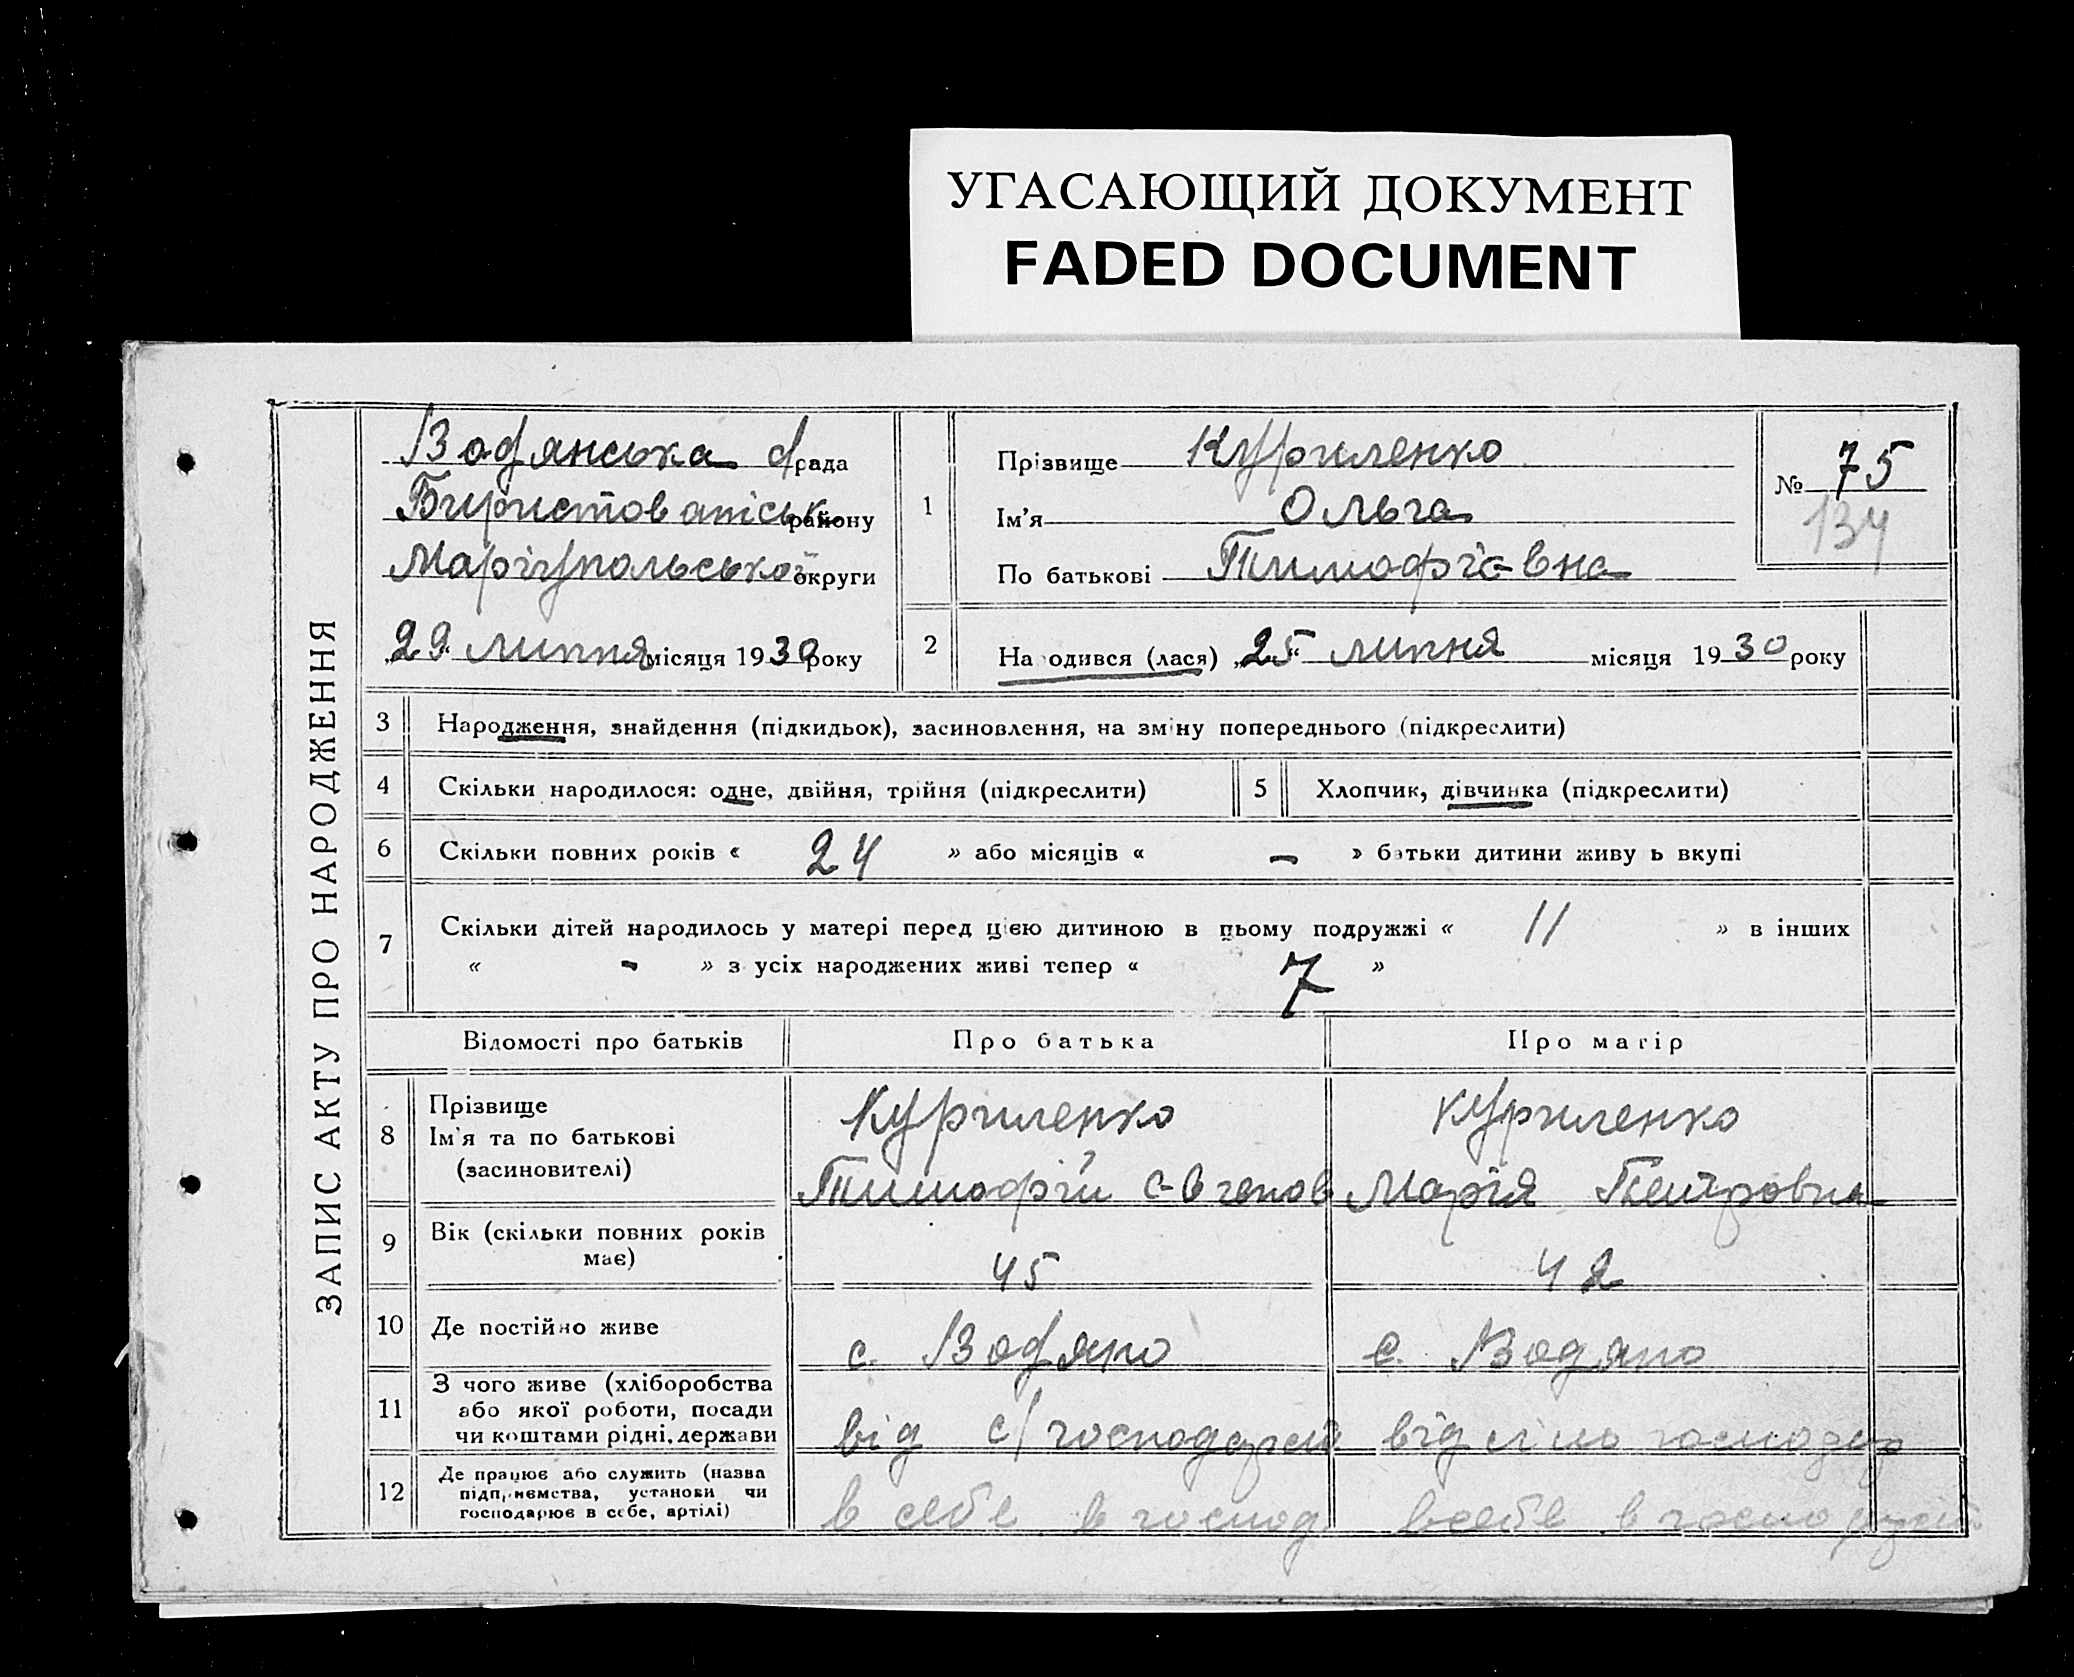 УГАСАЮЩИЙ ДОКУМЕНТ
FADED DOCUMENT
ЗАПИС АКТУ ПРО НАРОДЖЕННЯ
Водянська с/рада
району
Маріупольської округи
„29“ липня місяця 1930 року
1
Прізвище Куриленко
Ім'я Ольга
По батькові Тимофієвна
№ 75
134
2
Народився (лася) „25“ липня місяця 1930 року
3 Народження, знайдення (підкидьок), засиновлення, на зміну попереднього (підкреслити)
4 Скільки народилося: одне, двійня, трійня (підкреслити)
5 Хлопчик, дівчинка (підкреслити)
6 Скільки повних років « 24 » або місяців « – » батьки дитини живуть вкупі
7 Скільки дітей народилось у матері перед цією дитиною в цьому подружжі « 11 » в інших
« - » з усіх народжених живі тепер « 7 »
Відомості про батьків Про батька Про матір
8 Прізвище
Ім'я та по батькові
(засиновителі)
Куриленко
Тимофій Євгенов
Куриленко
Марія Петровна
9 Вік (скільки повних років
має)
45
42
10 Де постійно живе
с. Водяно
с. Водяно
11 З чого живе (хліборобства
або якої роботи, посади
чи коштами рідні, держави
від с/господарсв
від сіль господар
12 Де працює або служить (назва
підприємства, установи чи
господарює в себе, артілі)
в себе в господ.
в себе в господарств